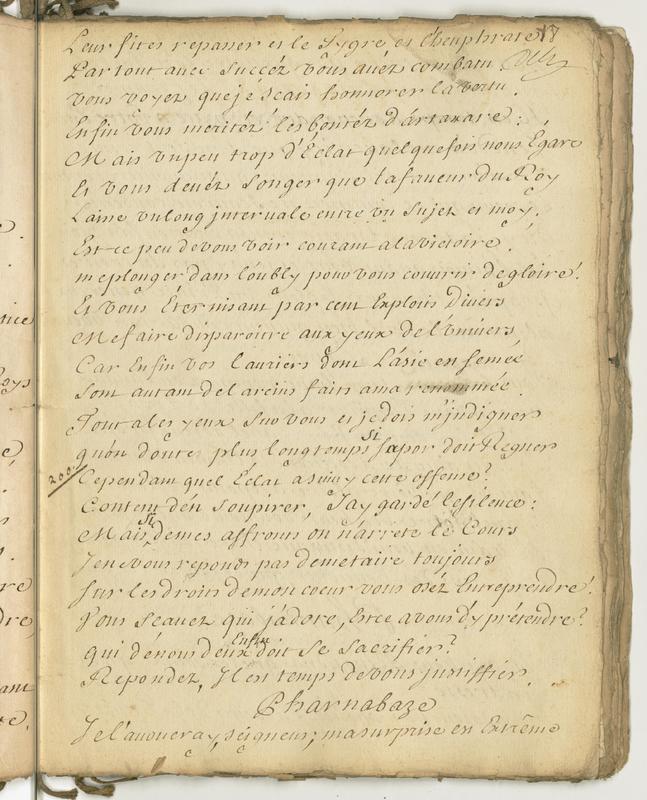 17
Leur fites repasser et le Tygre, et L'heuphrate
Par tout avec succéz vous avez combatu.
vous voyez que je scais honnorer la vertu.
Enfin vous meritéz les bontéz d'artaxare:
Mais un peu trop d'Éclat quelquefois nous Égare
Et vous devéz songer que la faveur du Roy
Laisse un long jntervale entre un sujet et moy.
Est-ce peu de vous voir courant a la victoire,
me plonger dans l'oubly pour vous couvrir de gloire!
Et vous Éternisant par cent Exploits Divers
Me faire disparoitre aux yeux de L'univers,
Car Enfin vos lauriers dont L'asie en semée
sont autant de larcins faits a ma renommée.
Tout a les yeux sur vous et je dois m'jndigner
qu'on doute plus longtemps si sapor doit Regner
200.
Cependant quel Éclat a suivy cette offense?
Content d'én soupirer, J'ay gardé le silence:
Mais si de mes affronts on n'arrete le Cours
Je ne vous reponds pas de me taire toujours
sur les droits de mon coeur vous oséz Entreprendre!
Vous scavez qui j'adore, Est ce a vous d'y prétendre?
qui dé nous deux Enfin doit se sacrifier?
Repondez, Jl est temps de vous justiffier.
Pharnabaze
Je l'avoueray, seigneur; ma surprise est Extrême